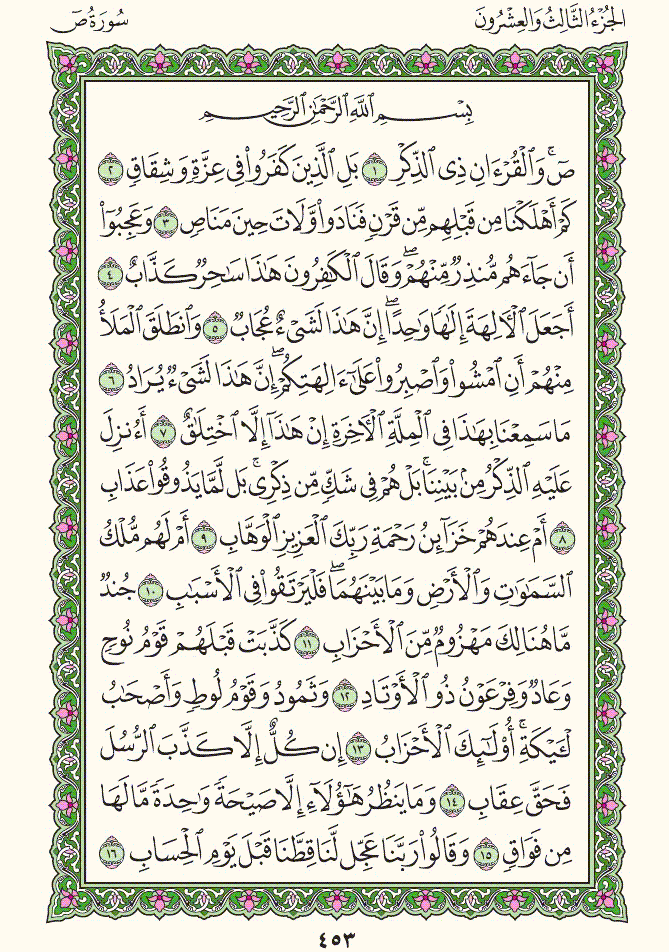 الجُزْءُ الثَّالِثُ وَالعِشْرُونَ
سُورَةُ صٓ
بِسْمِ ٱللَّهِ ٱلرَّحْمَٰنِ ٱلرَّحِيمِ
صٓۚ وَٱلْقُرْءَانِ ذِى ٱلذِّكْرِ ١ بَلِ ٱلَّذِينَ كَفَرُوا۟ فِى عِزَّةٍ وَشِقَاقٍ ٢
كَمْ أَهْلَكْنَا مِن قَبْلِهِم مِّن قَرْنٍ فَنَادَوا۟ وَّلَاتَ حِينَ مَنَاصٍ ٣ وَعَجِبُوٓا۟
أَن جَآءَهُم مُّنذِرٌ مِّنْهُمْۖ وَقَالَ ٱلْكَٰفِرُونَ هَٰذَا سَٰحِرٌ كَذَّابٌ ٤
أَجَعَلَ ٱلْءَالِهَةَ إِلَٰهًا وَٰحِدًاۖ إِنَّ هَٰذَا لَشَىْءٌ عُجَابٌ ٥ وَٱنطَلَقَ ٱلْمَلَأُ
مِنْهُمْ أَنِ ٱمْشُوا۟ وَٱصْبِرُوا۟ عَلَىٰٓ ءَالِهَتِكُمْۖ إِنَّ هَٰذَا لَشَىْءٌ يُرَادُ ٦
مَا سَمِعْنَا بِهَٰذَا فِى ٱلْمِلَّةِ ٱلْءَاخِرَةِ إِنْ هَٰذَآ إِلَّا ٱخْتِلَٰقٌ ٧ أَءُنزِلَ
عَلَيْهِ ٱلذِّكْرُ مِنۢ بَيْنِنَاۚ بَلْ هُمْ فِى شَكٍّ مِّن ذِكْرِىۚ بَل لَّمَّا يَذُوقُوا۟ عَذَابِ
٨ أَمْ عِندَهُمْ خَزَآئِنُ رَحْمَةِ رَبِّكَ ٱلْعَزِيزِ ٱلْوَهَّابِ ٩ أَمْ لَهُم مُّلْكُ
ٱلسَّمَٰوَٰتِ وَٱلْأَرْضِ وَمَا بَيْنَهُمَاۖ فَلْيَرْتَقُوا۟ فِى ٱلْأَسْبَٰبِ ١٠ جُندٌ
مَّا هُنَالِكَ مَهْزُومٌ مِّنَ ٱلْأَحْزَابِ ١١ كَذَّبَتْ قَبْلَهُمْ قَوْمُ نُوحٍ
وَعَادٌ وَفِرْعَوْنُ ذُو ٱلْأَوْتَادِ ١٢ وَثَمُودُ وَقَوْمُ لُوطٍ وَأَصْحَٰبُ
لْـَٔيْكَةِۚ أُو۟لَٰٓئِكَ ٱلْأَحْزَابُ ١٣ إِن كُلٌّ إِلَّا كَذَّبَ ٱلرُّسُلَ
فَحَقَّ عِقَابِ ١٤ وَمَا يَنظُرُ هَٰٓؤُلَآءِ إِلَّا صَيْحَةً وَٰحِدَةً مَّا لَهَا
مِن فَوَاقٍ ١٥ وَقَالُوا۟ رَبَّنَا عَجِّل لَّنَا قِطَّنَا قَبْلَ يَوْمِ ٱلْحِسَابِ ١٦
٤٥٣